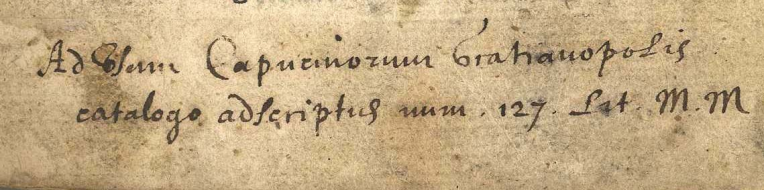 Ad Usum Capucinorum Gratianopolis
catalogo adscriptus num. 127. Lit. M. M